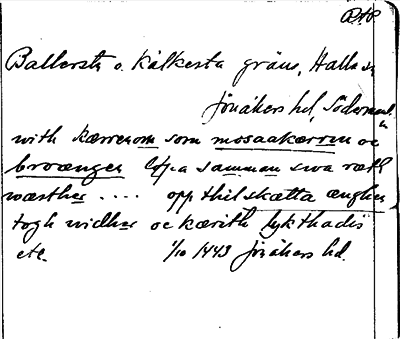 Ballersta o. Kälkesta gräns, Halla sn
Jönåkers hd, Söderml.
with kærrenom som mosaakærren oc
broænger löpa samman swa rætt
wæsther .... opp thil skætta ængher,
togh widhær oc kærith lykthadis
etc. 1/10 1443 Jönåkers hd.